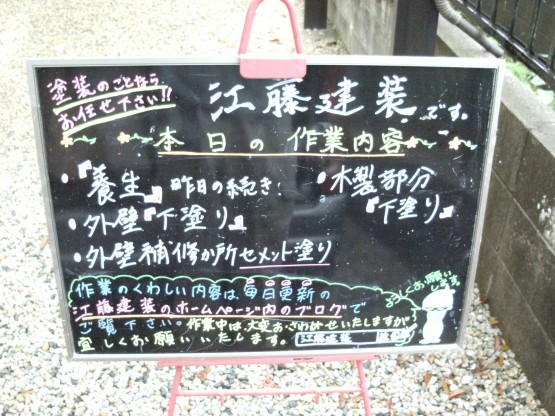 塗装のことなら
お任せ下さい!!
江藤建装です。
本日の作業内容
・『養生』昨日の続き!
・外壁『下塗り』
・外壁補修か所セメント塗り
・木製部分
『下塗り』
作業のくわしい内容は、毎日更新の
江藤建装のホームページ内のブログで
ご覧下さい。作業中は、大変おさわがせいたしますが
宜しくお願いいたします。
江藤建装
よろしくお願いします。